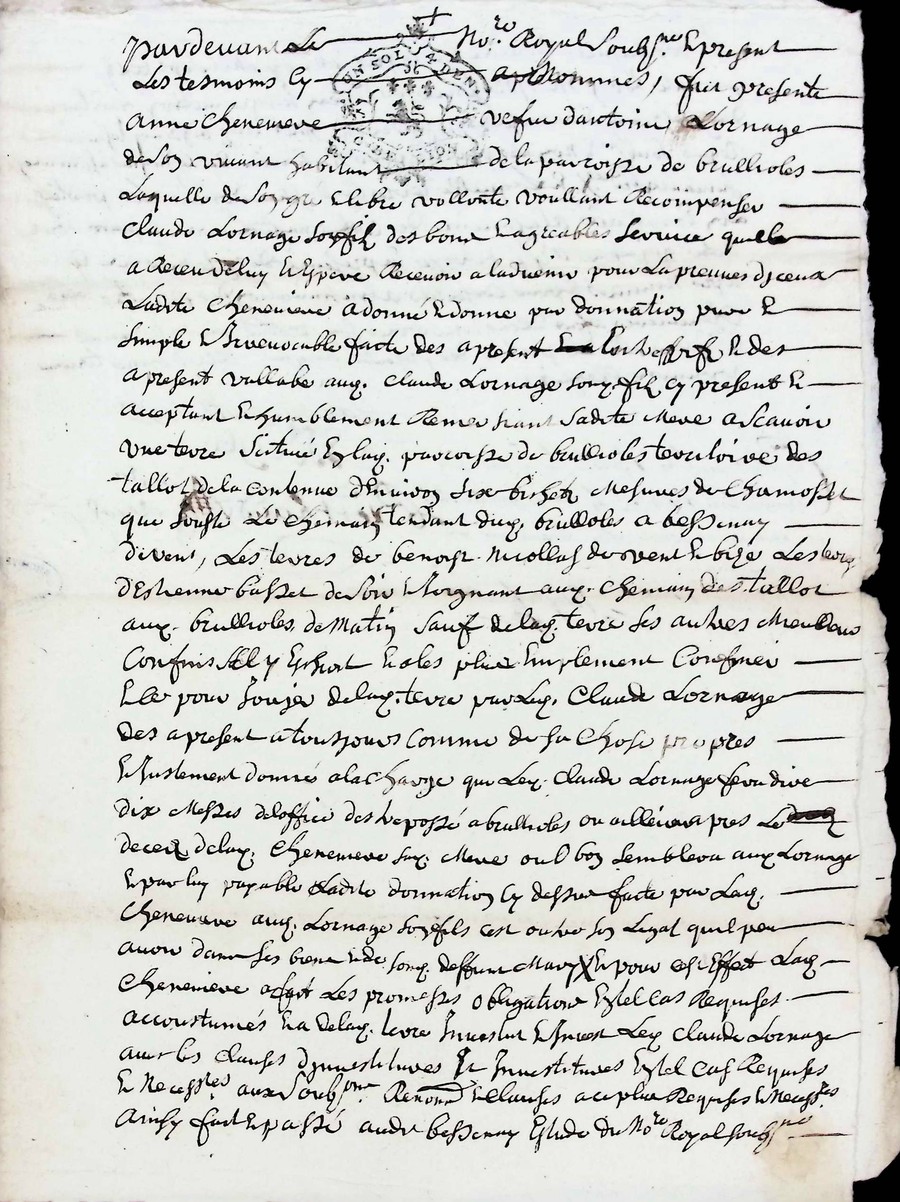 pardevant Le No.re Royal soub.ne & present
Les tesmoins cy apres nommes, fut presente
anne Chenevieve vefve dantoine Lornage
de son vivant habitant de la parroisse de brullioles
Laquelle de son gré & libre vollonté voullant Recompenser
Claude Lornage son filz des bons & agreables service quelle
a Receu deluy & Espere Recevoir a ladvenir pour La preuves diceux
Ladite Chenevieve a donné & donne par donnation pure &
simple & Irrevocable faicte des a present & des
a present vallabe auq. Claude Lornage son filz cy present &
acceptant & humblement Remersiant sadite Mere a scavoir
une terre Scituée en lad. parroisse de brullioles territoire des
tallot de la contenue d'Environ six bichetz Mesures de Chamosset
que Jouste Le chemain tendant dud. brullioles a bessenay
divent, Les terres de benoist nicollas de vent & bize Les terres
d'Estienne basset de soir & Joignant aux chemain des tallot
aux brullioles de Matin sauf de lad. terre ses autres Meilleurs
Confins sil y Eschoit & a les plus Emplement Confiner
& ce pour Jouir de lad. terre par Led. Claude Lornage
des a present a tousjours comme de sa Chose propres
& Justement donné a la Charge que Led. Claude Lornage fera dire
dix Messes de loffice des trepassé a brullioles ou ailleurs apres Le
decez delad. Chenevieve sad. Mere ou Il bon semblera aud. Lornage
& par luy payable Ladite donnation cy dessus faicte par Lad.
Chenevieve aud. Lornage son fils est outre son Legat quil peu
avoir dans ses biens & de sond. deffunt Mary & pour cest Effect Lad.
Chenevieve a fait Les promesses obligations En tel cas Requises
accoustumés & a delad. terre Investut & Invest Led. Claude Lornage
avec les clauses d'investitures Et Investitures En tel cas Requises
& Necess.res aux soub.nes Renond. & clauses a ce plus Requises & Necess.res
ainsy fait & passé aud. bessenay Estude du No.re Royal soub.né
UN SOL 4 DEN